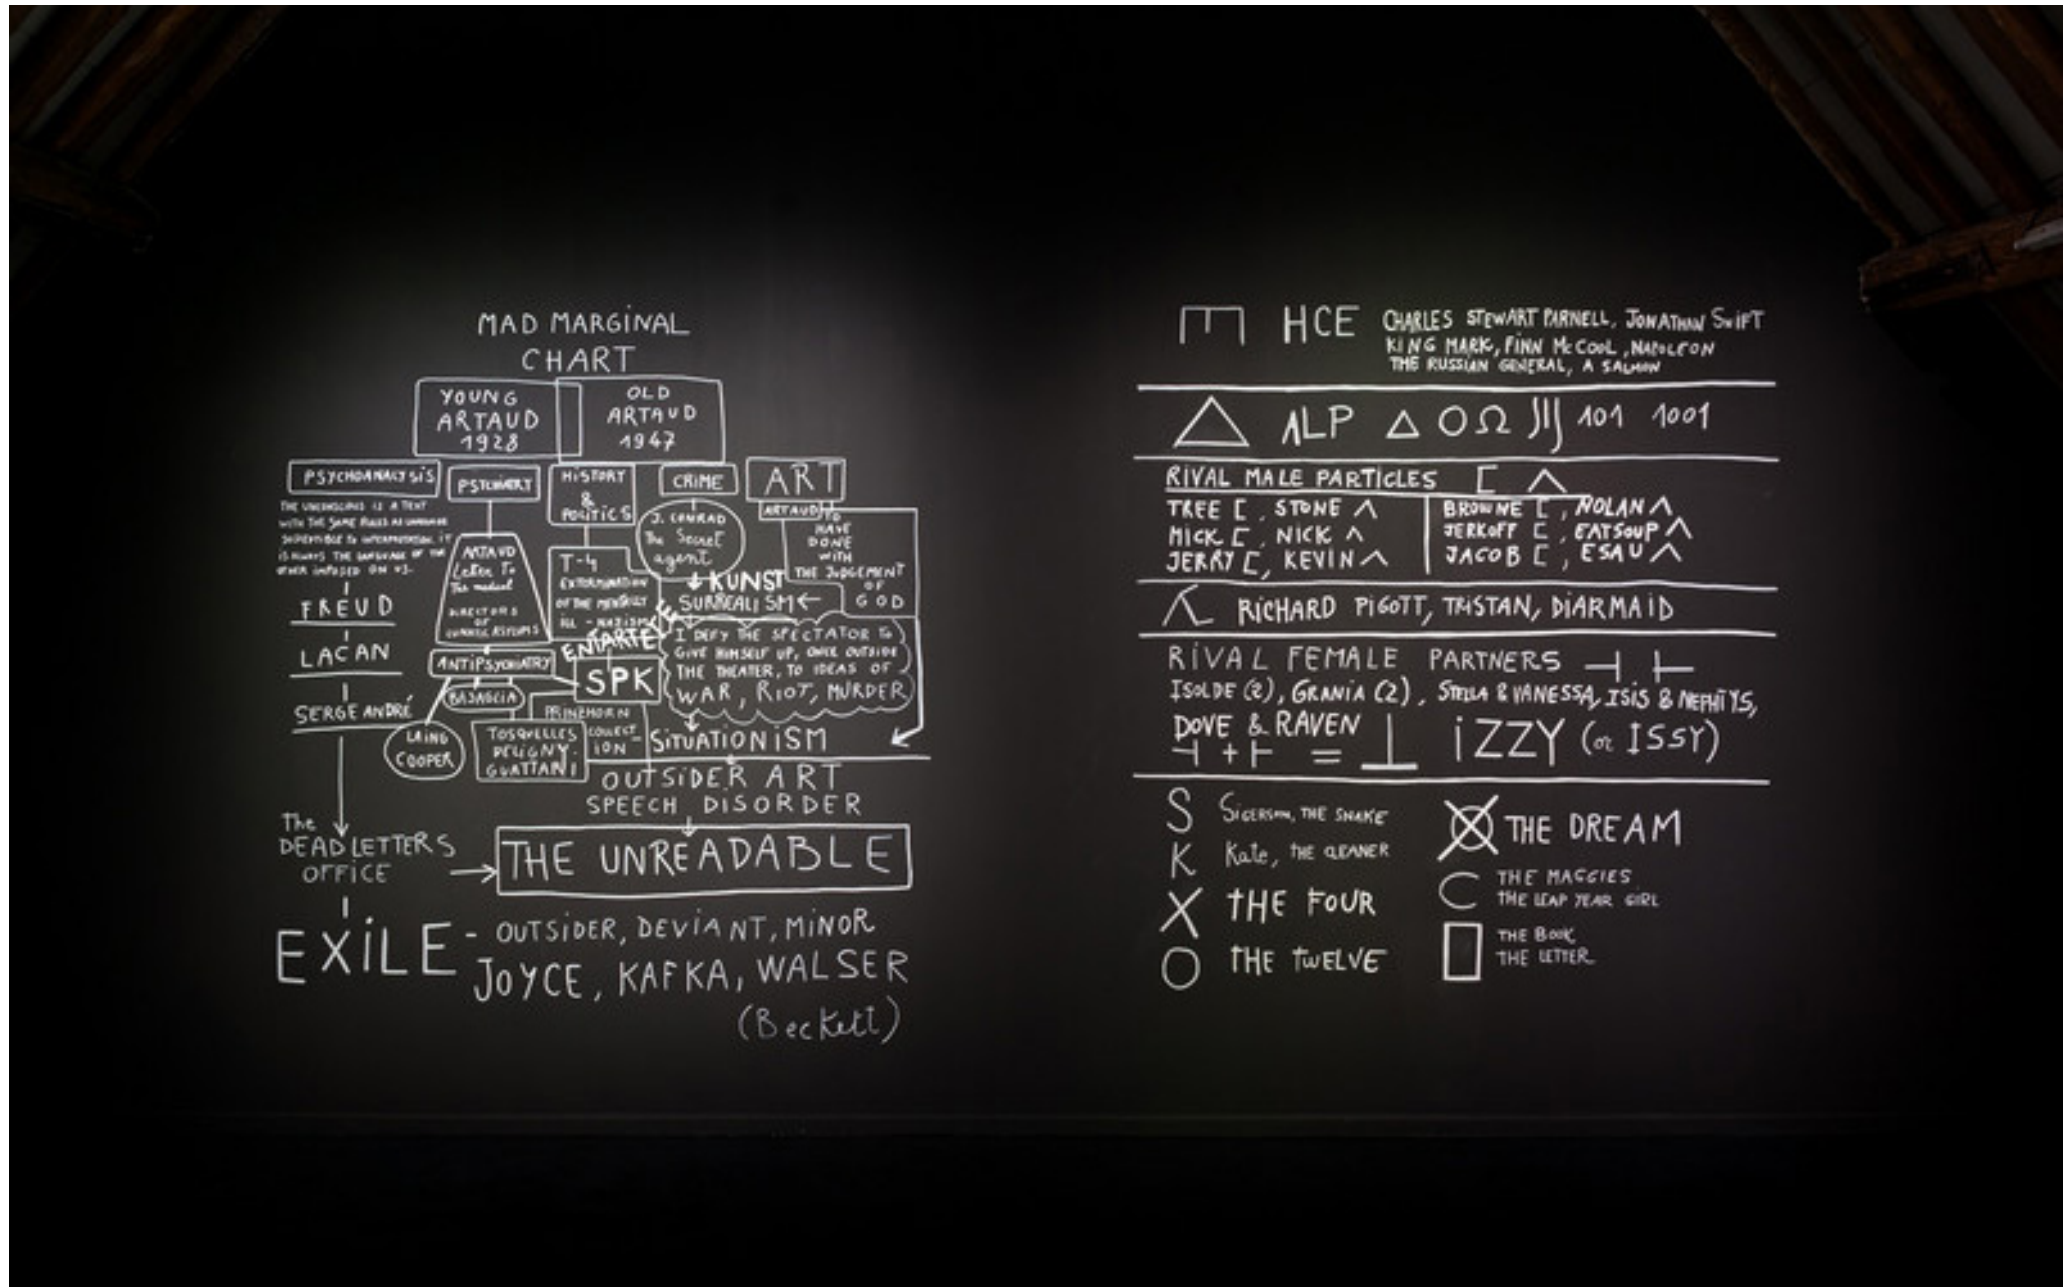 MAD MARGINAL
CHART
YOUNG
ARTAUD
1928
OLD
ARTAUD
1947
PSYCHOANALYSIS
THE UNCONSCIOUS IS A TEXT
WITH THE SAME RULES AS LANGUAGE
SUSCEPTIBLE TO INTERPRETATION. IT
IS ALWAYS THE LANGUAGE OF THE
OTHER IMPOSED ON US.
FREUD
LACAN
SERGE ANDRÉ
The
DEAD LETTERS
OFFICE
ARTAUD
Letter To
The medical
DIRECTORS
OF
ASYLUMS
ANTIPSYCHIATRY
BASAGLIA
LAING
COOPER
TOSQUELLES
DELIGNY.
GUATTARI
HISTORY
&
POLITICS
T-4
EXTERMINATION
OF THE MENTALLY
ILL - NAZISM
ENTARTETE
SPK
PRINZHORN
COLLECT-
ION
CRIME
J. CONRAD
The Secret
agent
KUNST
SURREALISM
I DEFY THE SPECTATOR TO
GIVE HIMSELF UP, ONCE OUTSIDE
THE THEATER, TO IDEAS OF
WAR, RIOT, MURDER
SITUATIONISM
ART
ARTAUD TO
HAVE
DONE
WITH
THE JUDGEMENT
OF
GOD
OUTSIDER ART
SPEECH DISORDER
THE UNREADABLE
EXILE - OUTSIDER, DEVIANT, MINOR
JOYCE, KAFKA, WALSER
(Beckett)
E HCE CHARLES STEWART PARNELL, JONATHAN SWIFT
KING MARK, FINN McCOOL, NAPOLEON
THE RUSSIAN GENERAL, A SALMON
△ ALP △ O Ω 101 1001
RIVAL MALE PARTICLES [ Λ
TREE [, STONE Λ
MICK [, NICK Λ
JERRY [, KEVIN Λ
BROWNE [, NOLAN Λ
JERKOFF [, EATSOUP Λ
JACOB [, ESAU Λ
RICHARD PIGOTT, TRISTAN, DIARMAID
RIVAL FEMALE PARTNERS ⊣ ⊢
ISOLDE (2), GRANIA (2), STELLA & VANESSA, ISIS & NEPHTYS,
DOVE & RAVEN
⊣ + ⊢ = ⊥ IZZY (or ISSY)
S SIGERSON, THE SNAKE
K Kate, THE CLEANER
X THE FOUR
O THE TWELVE
THE DREAM
C THE MAGGIES
THE LEAP YEAR GIRL
THE BOOK
THE LETTER